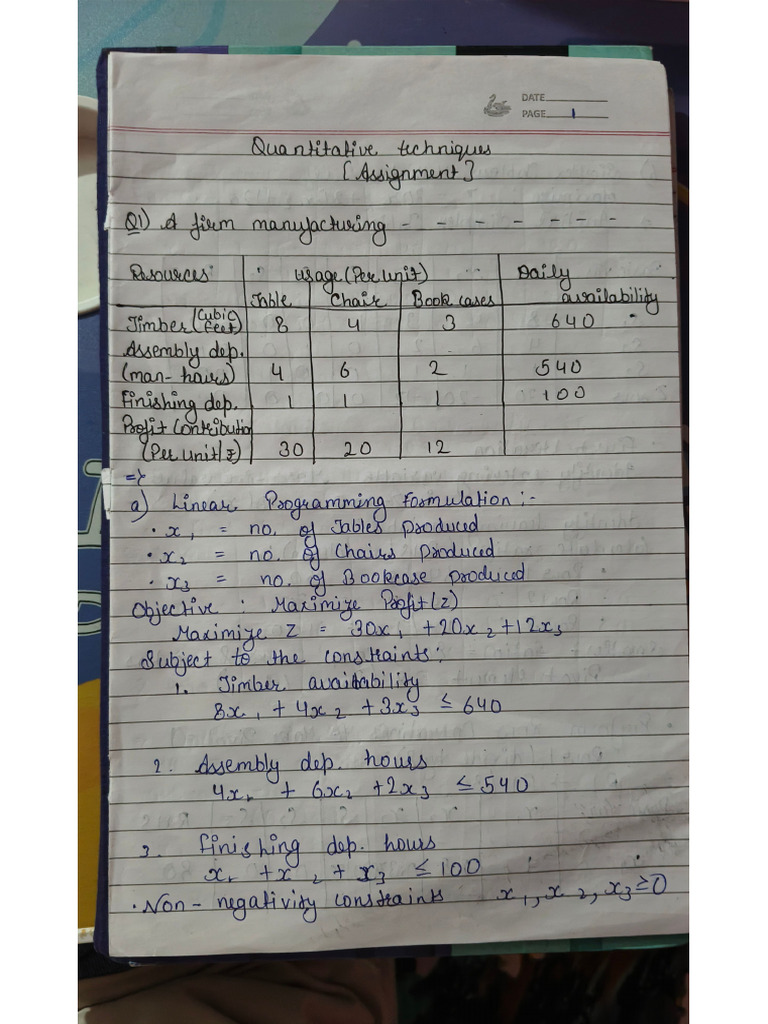 DATE
PAGE 1
Quantitative techniques
[Assignment]
Q1) A firm manufacturing - - - - - - -
Resources Usage (Per Unit) Daily
Table Chair Book cases availability
Timber (Cubic feet) 8 4 3 640
Assembly dep.
(man-hours) 4 6 2 540
Finishing dep. 1 1 1 100
Profit Contribution
(Per unit/₹) 30 20 12
=>
a) Linear Programming Formulation :-
• x1 = no. of Tables produced
• x2 = no. of Chairs produced
• x3 = no. of Bookcase produced
Objective : Maximize Profit (z)
Maximize Z = 30x1 + 20x2 + 12x3
Subject to the constraints :
1. Timber availability
8x1 + 4x2 + 3x3 ≤ 640
2. Assembly dep. hours
4x1 + 6x2 + 2x3 ≤ 540
3. Finishing dep. hours
x1 + x2 + x3 ≤ 100
• Non - negativity constraints x1, x2, x3 ≥ 0